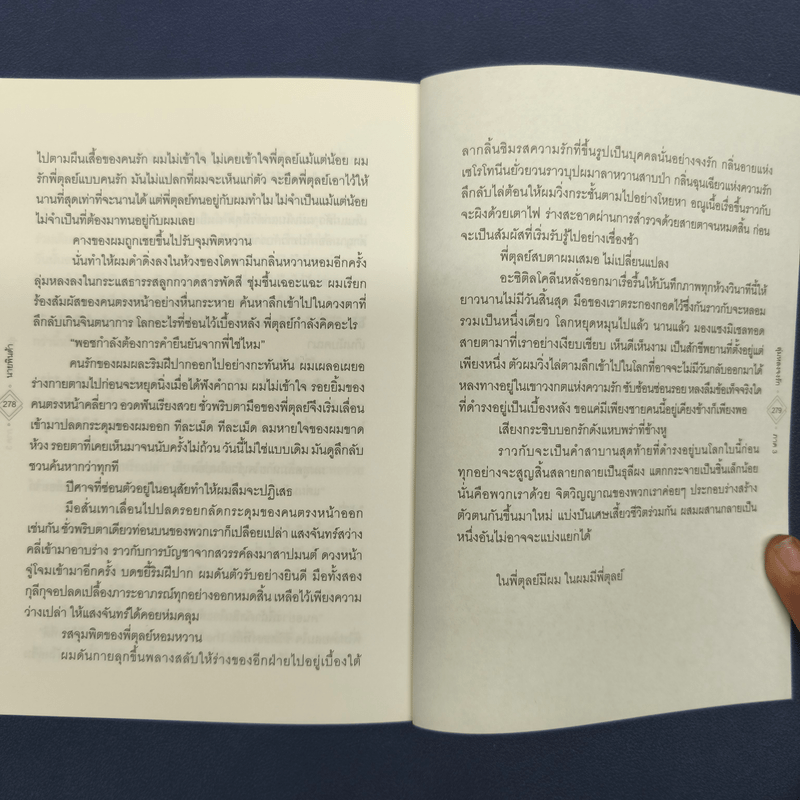 ไปตามผืนเสื้อของคนรัก ผมไม่เข้าใจ ไม่เคยเข้าใจพี่ตุลย์แม้แต่น้อย ผม
รักพี่ตุลย์แบบคนรัก มันไม่แปลกที่ผมจะเห็นแก่ตัว จะยึดพี่ตุลย์เอาไว้ให้
นานที่สุดเท่าที่จะนานได้ แต่พี่ตุลย์ทนอยู่กับผมทำไม ไม่จำเป็นแม้แต่น้อย
ไม่จำเป็นที่ต้องมาทนอยู่กับผมเลย
คางของผมถูกเชยขึ้นไปรับจุมพิตหวาน
นั่นทำให้ผมดำดิ่งลงในห้วงของโดพามีนกลิ่นหวานหอมอีกครั้ง
ลุ่มหลงลงในกระแสธารรสลูกกวาดสารพัดสี ชุ่มชื้นเฉอะแฉะ ผมเรียก
ร้องสัมผัสของคนตรงหน้าอย่างหื่นกระหาย ค้นหาลึกเข้าไปในดวงตาที่
ลึกลับเกินจินตนาการ โลกอะไรที่ซ่อนไว้เบื้องหลัง พี่ตุลย์กำลังคิดอะไร
“พอชกำลังต้องการคำยืนยันจากพี่ใช่ไหม”
คนรักของผมผละริมฝีปากออกไปอย่างกะทันหัน ผมเผลอเผยอ
ร่างกายตามไปก่อนจะหยุดนิ่งเมื่อได้ฟังคำถาม ผมไม่เข้าใจ รอยยิ้มของ
คนตรงหน้าคลี่ยาว อวดฟันเรียงสวย ชั่วพริบตามือของพี่ตุลย์จึงเริ่มเลื่อน
เข้ามาปลดกระดุมของผมออก ทีละเม็ด ทีละเม็ด ลมหายใจของผมขาด
ห้วง รอยตาที่เคยเห็นมาจนนับครั้งไม่ถ้วน วันนี้ไม่ใช่แบบเดิม มันดูลึกลับ
ชวนค้นหากว่าทุกที
ปีศาจที่ซ่อนตัวอยู่ในอนุสัยทำให้ผมลืมจะปฏิเสธ
มือสั่นเทาเลื่อนไปปลดรอยกลัดกระดุมของคนตรงหน้าออก
เช่นกัน ชั่วพริบตาเดียวท่อนบนของพวกเราก็เปลือยเปล่า แสงจันทร์สว่าง
คลี่เข้ามาอาบร่าง ราวกับการบัญชาจากสวรรค์ลงมาสาปมนต์ ดวงหน้า
จู่โจมเข้ามาอีกครั้ง บดขยี้ริมฝีปาก ผมดันตัวรับอย่างยินดี มือทั้งสอง
กุลีกุจอปลดเปลื้องภาระอาภรณ์ทุกอย่างออกหมดสิ้น เหลือไว้เพียงความ
ว่างเปล่า ให้แสงจันทร์ได้คอยห่มคลุม
รสจุมพิตของพี่ตุลย์หอมหวาน
ผมดันกายลุกขึ้นพลางสลับให้ร่างของอีกฝ่ายไปอยู่เบื้องใต้
นายพินต้า
278
ลากลิ้นชิมรสความรักที่ขึ้นรูปเป็นบุคคลนั่นอย่างจงรัก กลิ่นอายแห่ง
เซโรโทนีนยั่วยวนราวบุปผมาลาหวานสาบป่า กลิ่นฉุนเฉียวแห่งความรัก
ลึกลับไล่ต้อนให้ผมวิ่งกระชั้นตามไปอย่างโหยหา อณูเนื้อเรื่อขึ้นราวกับ
จะผิงด้วยเตาไฟ ร่างสะอาดผ่านการสำรวจด้วยสายตาจนหมดสิ้น ก่อน
จะเป็นสัมผัสที่เริ่มรับรู้ไปอย่างเชื่องช้า
พี่ตุลย์สบตาผมเสมอ ไม่เปลี่ยนแปลง
อะซิติลโคลีนหลั่งออกมาเรื่อรื้นให้บันทึกภาพทุกห้วงวินาทีนี้ให้
ยาวนานไม่มีวันสิ้นสุด มือของเราตระกองกอดไว้ซึ่งกันราวกับจะหลอม
รวมเป็นหนึ่งเดียว โลกหยุดหมุนไปแล้ว นานแล้ว มองแชงมิเชลทอด
สายตามาที่เราอย่างเงียบเชียบ เห็นดีเห็นงาม เป็นสักขีพยานที่ตั้งอยู่แต่
เพียงหนึ่ง ตัวผมวิ่งไล่ตามลึกเข้าไปในโลกที่อาจจะไม่มีวันกลับออกมาได้
หลงทางอยู่ในเขาวงกตแห่งความรัก ซับซ้อนซ่อนรอย หลงลืมข้อเท็จจริงใด
ที่ดำรงอยู่เป็นเบื้องหลัง ขอแค่มีเพียงชายคนนี้อยู่เคียงข้างก็เพียงพอ
เสียงกระซิบบอกรักดังแหบพร่าที่ข้างหู
ราวกับจะเป็นคำสาบานสุดท้ายที่ดำรงอยู่บนโลกใบนี้ก่อน
ทุกอย่างจะสูญสิ้นสลายกลายเป็นธุลีผง แตกกระจายเป็นชิ้นเล็กน้อย
นั่นคือพวกเราด้วย จิตวิญญาณของพวกเราค่อยๆ ประกอบร่างสร้าง
ตัวตนกันขึ้นมาใหม่ แบ่งปันเศษเสี้ยวชีวิตร่วมกัน ผสมผสานกลายเป็น
หนึ่งอันไม่อาจจะแบ่งแยกได้
ในพี่ตุลย์มีผม ในผมมีพี่ตุลย์
279
ภาค 3